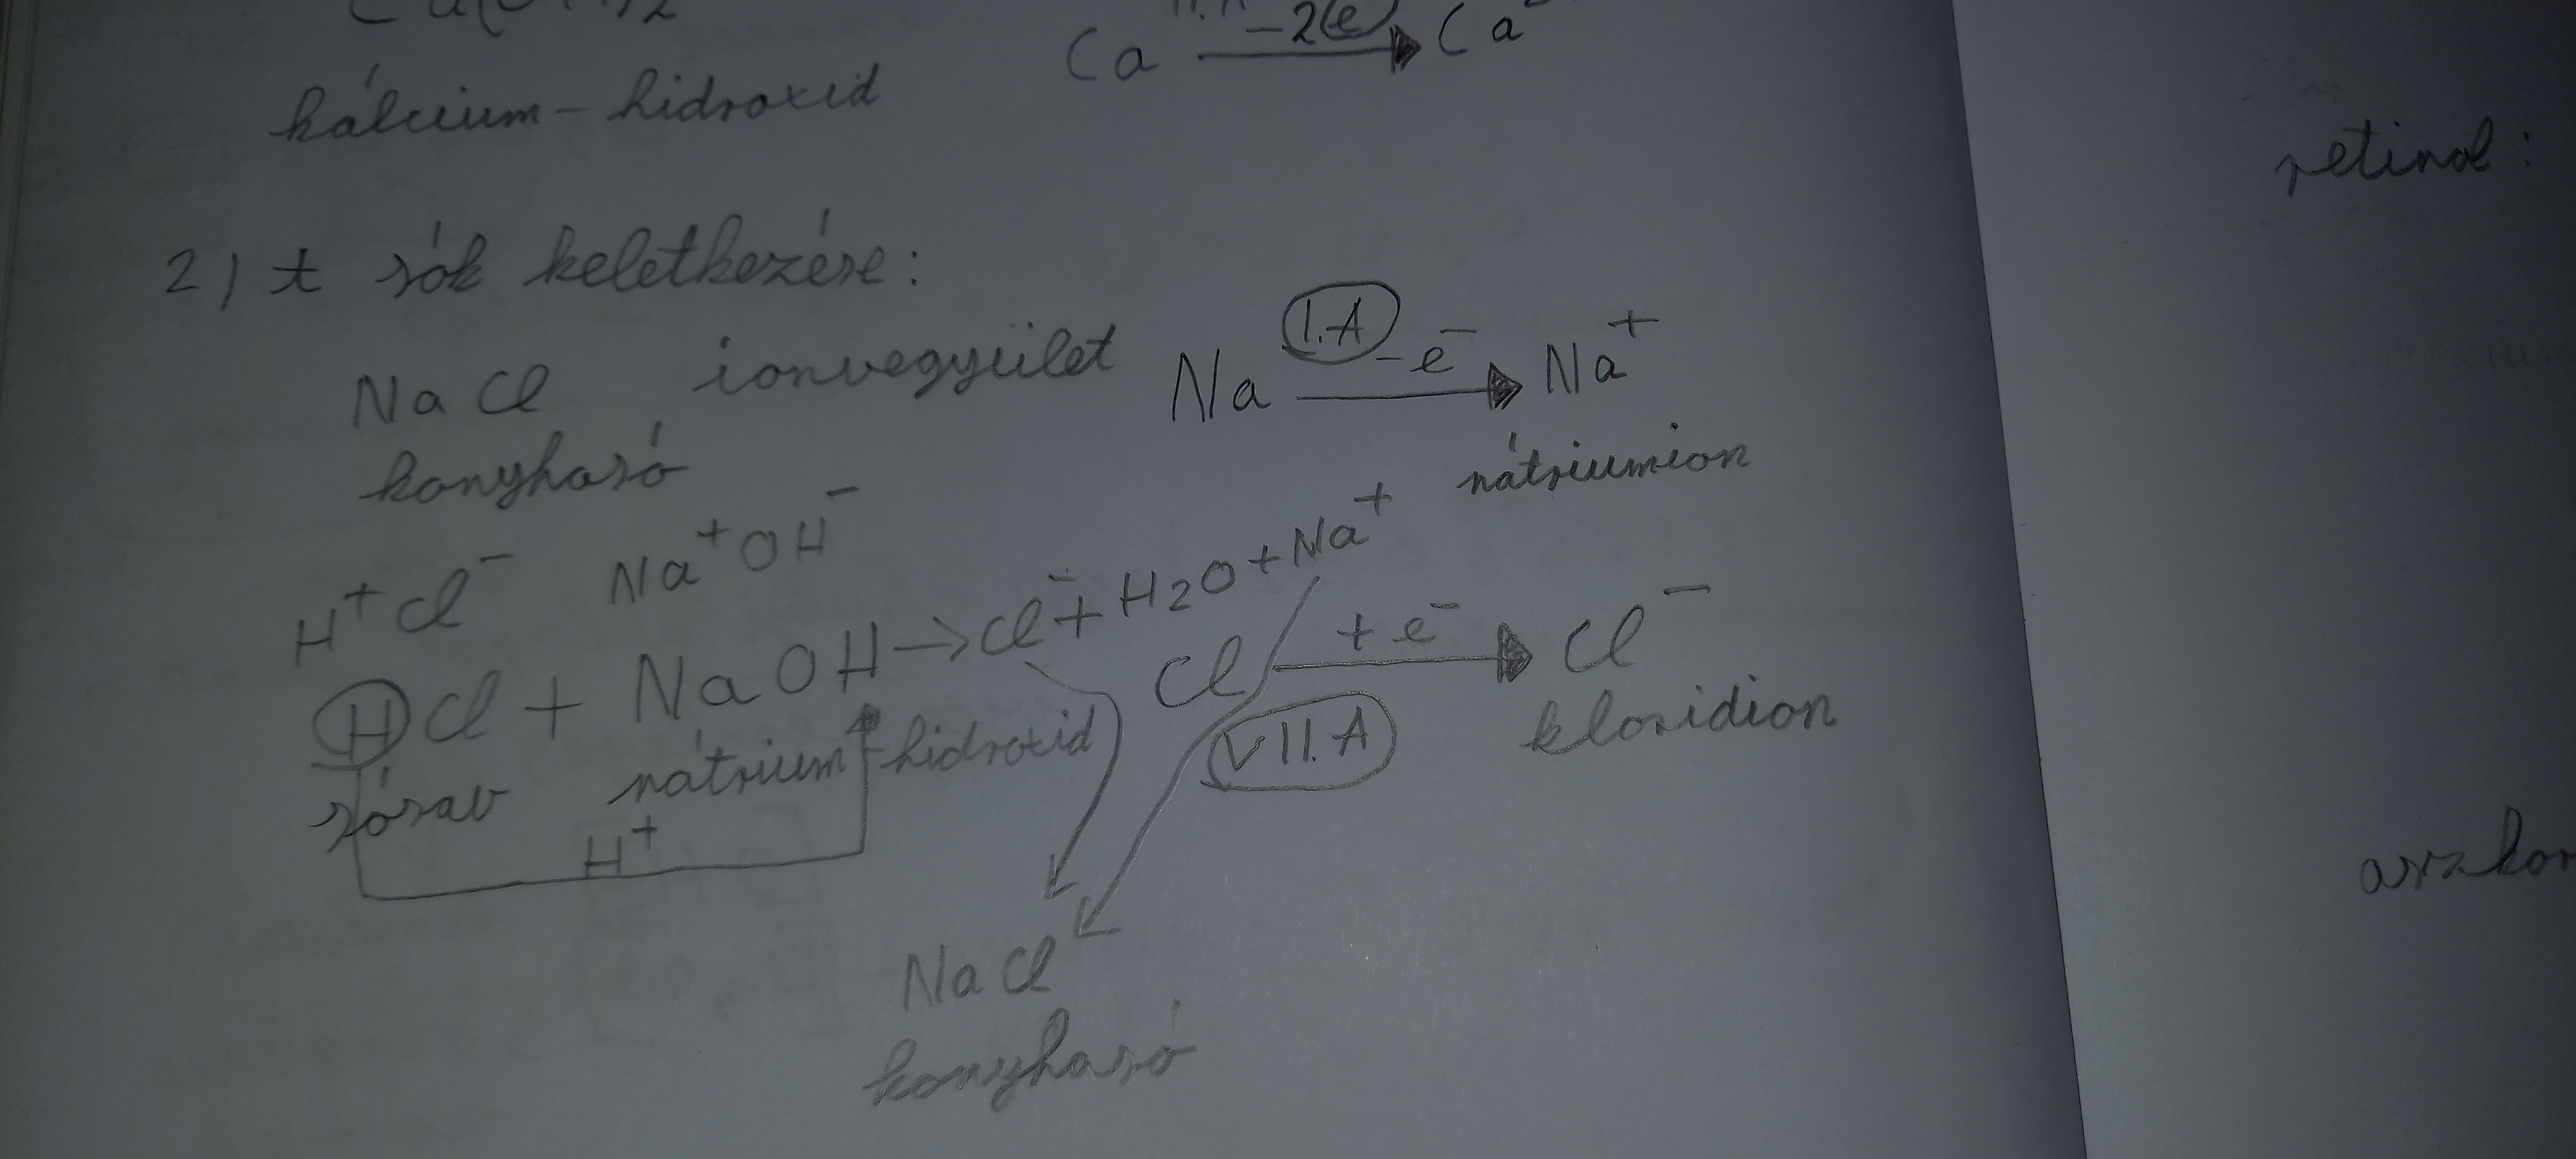 Ca -2e Ca
kálcium-hidroxid
retinol:
2) t sók keletkezése:
NaCl ionvegyület Na I.A -e⁻ Na⁺
konyhasó nátriumion
H⁺Cl⁻ Na⁺OH⁻
HCl + NaOH → Cl⁻ + H2O + Na⁺
sósav nátrium-hidroxid
H⁺
Cl +e⁻ Cl⁻
VII.A kloridion
NaCl
konyhasó